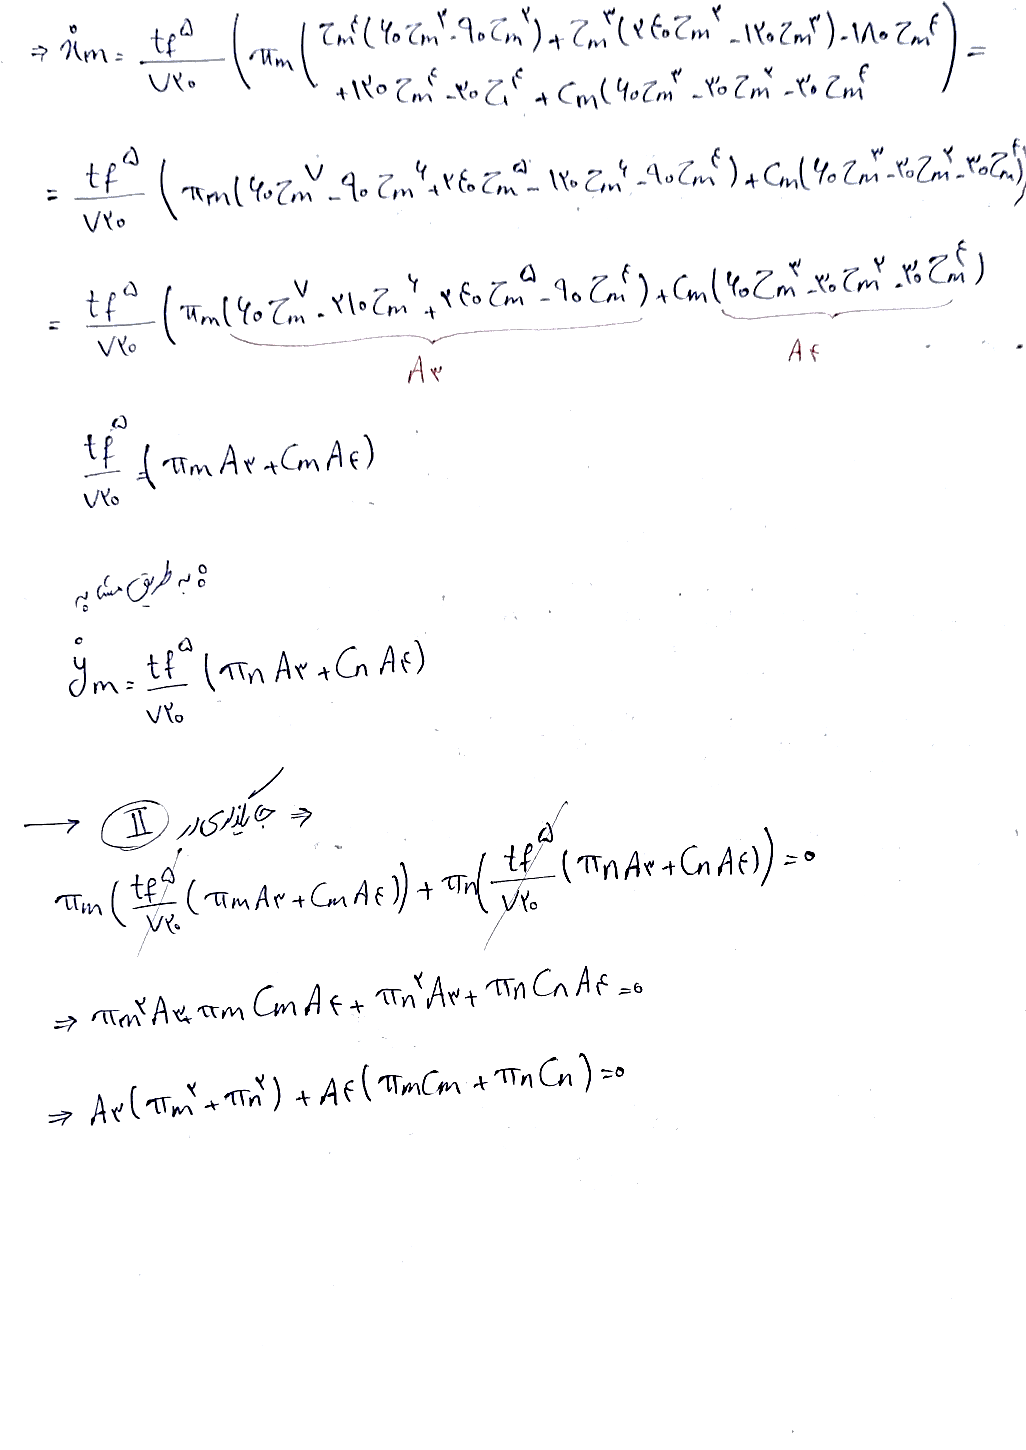 ⇒ ẋm = tf^۵/۷۲۰ (πm (τm^۴(۶۰τm^۳-۹۰τm^۲)+τm^۳(۲۴۰τm^۲-۱۲۰τm^۳)-۱۸۰τm^۴) =
+۱۲۰τm^۴-۳۰τ۱^۴ + Cm(۶۰τm^۳-۳۰τm^۲-۳۰τm^۴
= tf^۵/۷۲۰ (πm(۶۰τm^۷-۹۰τm^۶+۲۴۰τm^۵-۱۲۰τm^۶-۹۰τm^۴)+Cm(۶۰τm^۳-۳۰τm^۲-۳۰τm^۴)
= tf^۵/۷۲۰ (πm(۶۰τm^۷-۲۱۰τm^۶+۲۴۰τm^۵-۹۰τm^۴)+Cm(۶۰τm^۳-۳۰τm^۲-۳۰τm^۴)
A۳ A۴
tf^۵/۷۲۰ (πm A۳+Cm A۴)
به طریق مشابه
ẏm = tf^۵/۷۲۰ (πn A۳+Cn A۴)
→ II جایگذاری در ⇒
πm (tf^۵/۷۲۰ (πm A۳+Cm A۴)) + πn(tf^۵/۷۲۰ (πn A۳+Cn A۴)) = ۰
⇒ πm^۲ A۳+πm Cm A۴ + πn^۲ A۳+ πn Cn A۴ = ۰
⇒ A۳(πm^۲+πn^۲) + A۴(πm Cm + πn Cn) = ۰